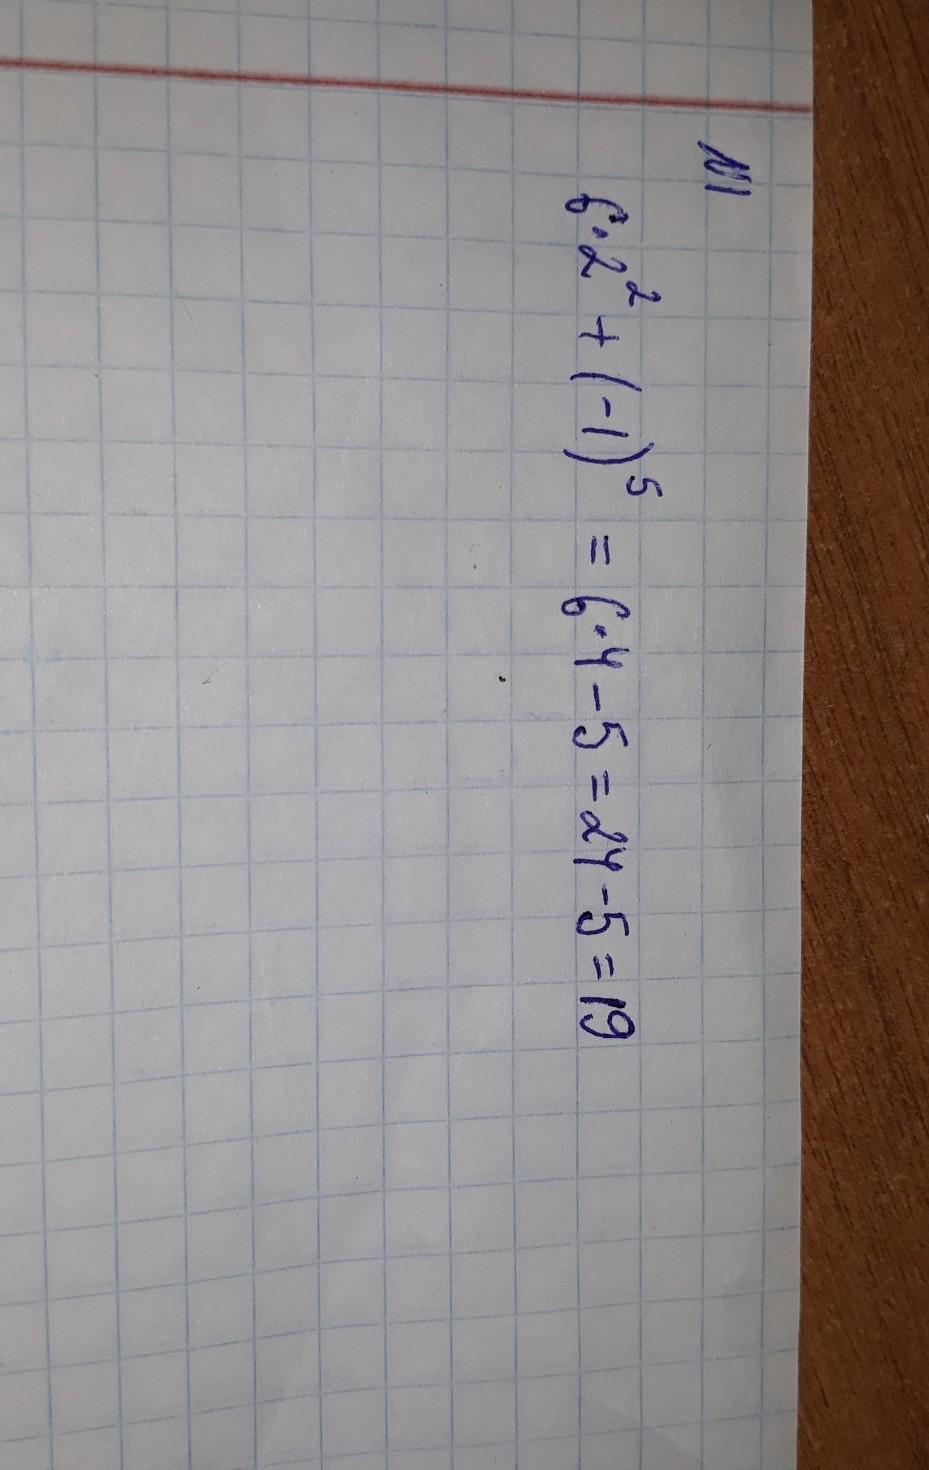 №1
6·2² + (-1)⁵ = 6·4 - 5 = 24 - 5 = 19